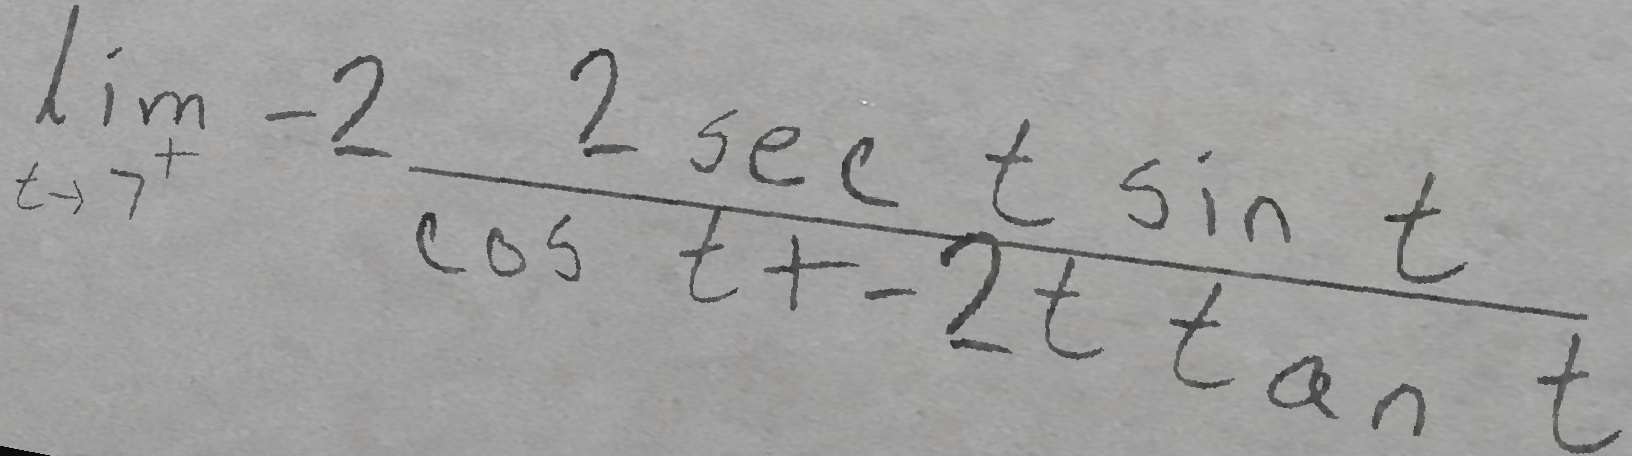 \lim_{t \to 7^+} -2 \frac{2 \sec t \sin t}{\cos t + -2t \tan t}